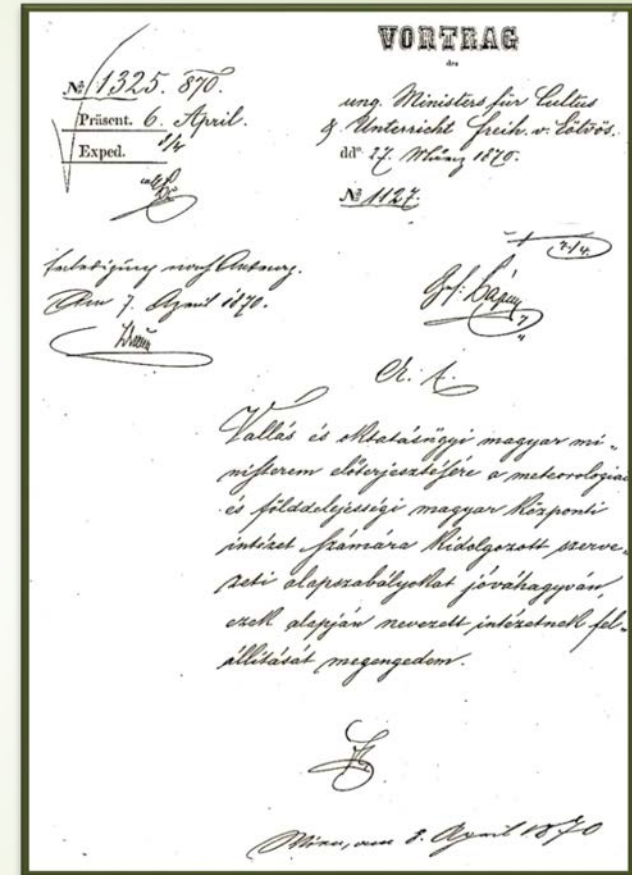 VORTRAG
des
№ 1325. 870.
Präsent. 6. April.
Exped. 8/4
ung. Ministers für Cultus
& Unterricht Freih. v. Eötvös.
ddo 27. März 1870.
№ 1127.
7/4.
Erledigung nach Antrag.
Am 7. April 1870.
A. E.
Vallás és oktatásügyi magyar mi„
nisterem előterjesztésére a meteorologiai
és földdelejességi magyar központi
intézet számára kidolgozott szerve„
zeti alapszabályokat jóváhagyván,
ezek alapján nevezett intézetnek fel„
állítását megengedem.
Wien, am 8. April 1870